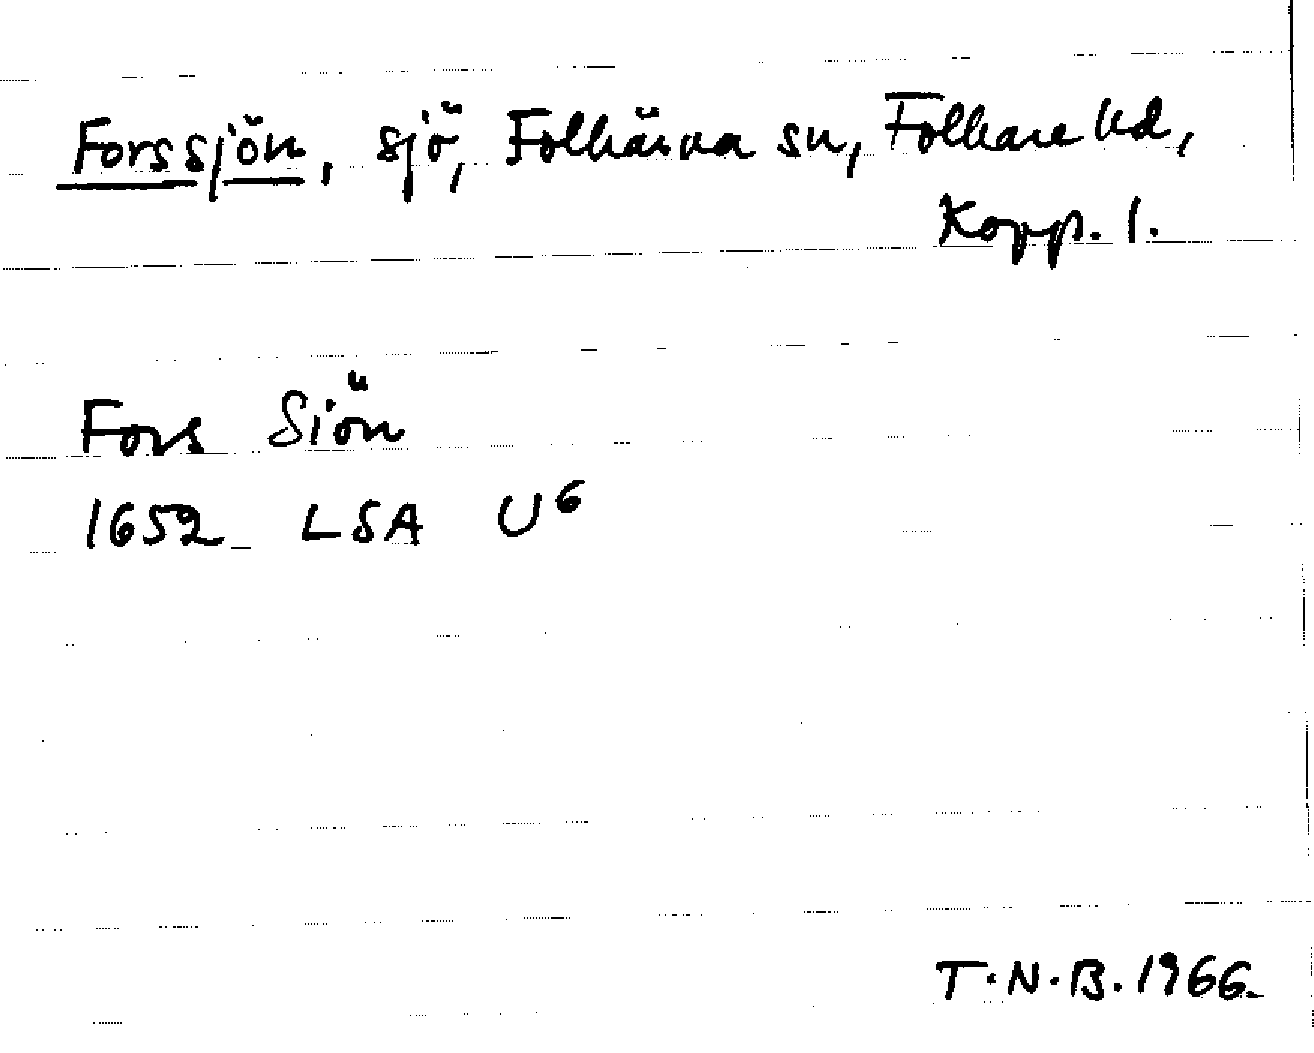 Forssjön, sjö, Folkärna sn, Folkare hd,
Kopp. l.
Fors Siön
1652 LSA U6
T.N.B. 1966